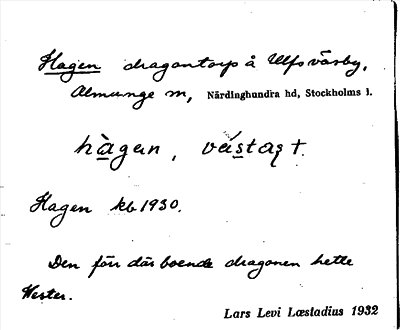 Hagen dragontorp å Ulfsväsby,
Almunge sn, Närdinghundra hd, Stockholms l.
hàgen, västagt.
Hagen kb 1930.
Den förr där boende dragonen hette
Wester.
Lars Levi Læstadius 1932